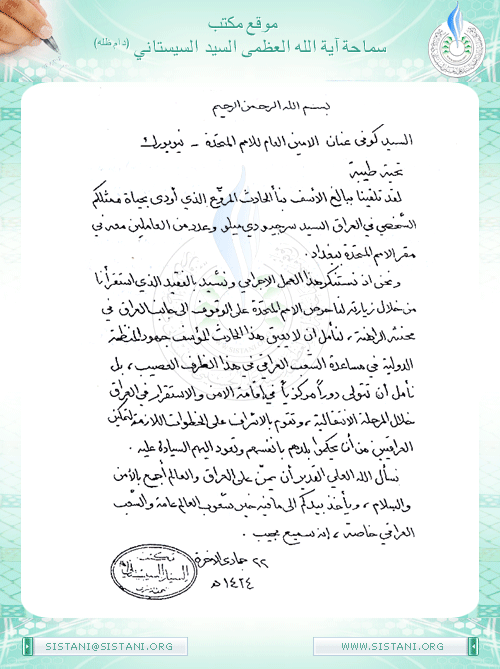 موقع مكتب
سماحة آية الله العظمى السيد السيستاني (دام ظله)
SISTANI.ORG
بسم الله الرحمن الرحيم
السيد كوفي عنان الامين العام للامم المتحدة - نيويورك
تحية طيبة
لقد تلقينا ببالغ الأسف نبأ الحادث المروّع الذي أودى بحياة ممثلكم
الشخصي في العراق السيد سرجيو دي ميلو وعدد من العاملين معه في
مقر الامم المتحدة ببغداد.
ونحن اذ نستنكر هذا العمل الاجرامي ونشيد بالفقيد الذي استقرأنا
من خلال زيارته لنا حرص الامم المتحدة على الوقوف الى جانب العراق في
محنته الراهنة، لنأمل ان لا يعيق هذا الحادث المؤسف جهود المنظمة
الدولية في مساعدة الشعب العراقي في هذا الظرف العصيب، بل
نأمل أن تتولى دوراً مركزياً في إقامة الامن والاستقرار في العراق
خلال المرحلة الانتقالية، وتقوم بالاشراف على الخطوات اللازمة لتمكين
العراقيين من أن يحكموا بلدهم بانفسهم وتعود اليهم السيادة عليه.
نسأل الله العلي القدير أن يمنّ على العراق والعالم أجمع بالأمن
والسلام، ويأخذ بيدكم الى ما فيه خير شعوب العالم عامة والشعب
العراقي خاصة، إنه سميع مجيب.
٢٢ جمادى الآخرة
١٤٢٤ هـ
مكتب
السيد السيستاني
SISTANI@SISTANI.ORG
WWW.SISTANI.ORG